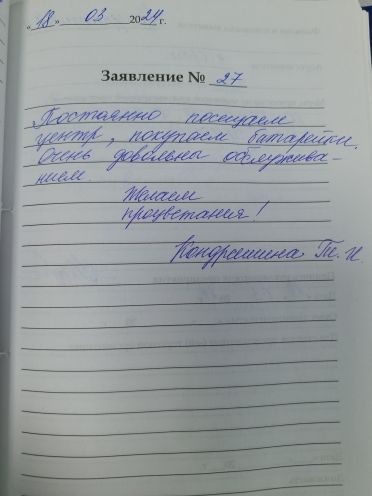 "18" 03 2024 г.
Заявление № 27
Постоянно посещаем
центр, покупаем батарейки.
Очень довольны обслужива-
нием
Желаем
процветания!
Кондрашина Т. И.